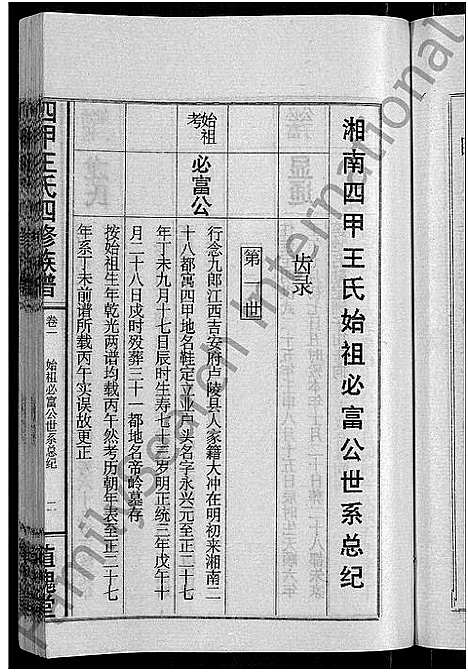 湘南四甲王氏始祖必富公世系总纪
齿录
第一世
始祖考
必富公
行念九郎江西吉安府卢陵县人家籍大冲在明初来湘南二
十八都寓四甲地名鞋定立业户头名字永兴元至正二十七
年丁未九月十七日辰时生寿七十三岁明正统三年戊午十
月二十八日戌时殁葬三十一都地名帝岭墓存
按始祖生年乾光两谱均载丙午然考历朝年表至正二十七
年系丁未前谱所载丙午实误故更正
四甲王氏四修族谱
卷二
始祖必富公世系总纪
二
植槐堂
Family Search International